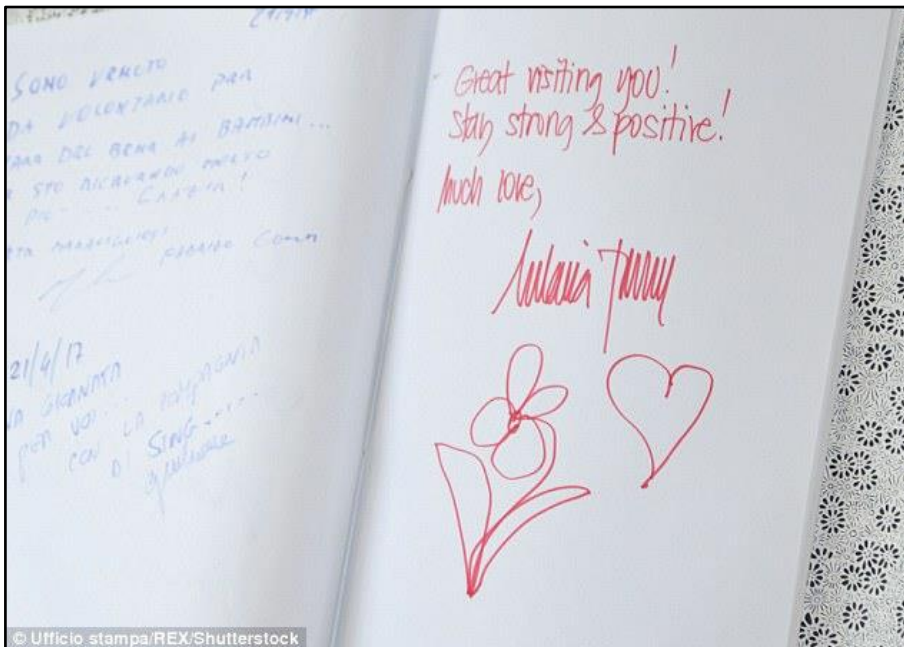 SONO VENUTO
DA VOLONTARIO PER
DEL BENE AI BAMBINI...
STO RICEVENDO
PIÙ
21/4/17
GIORNATA
PER VOI...
CON LA COMPAGNIA
DI SING......
Great visiting you!
Stay strong & positive!
Much love,
Melania Trump
© Ufficio stampa/REX/Shutterstock